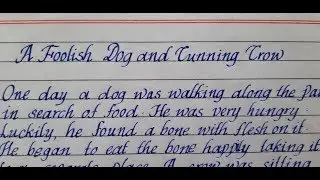 A Foolish Dog and Cunning Crow
One day a dog was walking along the
in search of food. He was very hungry
Luckily, he found a bone with flesh on it.
He began to eat the bone happly taking it
place. A crow was sitting